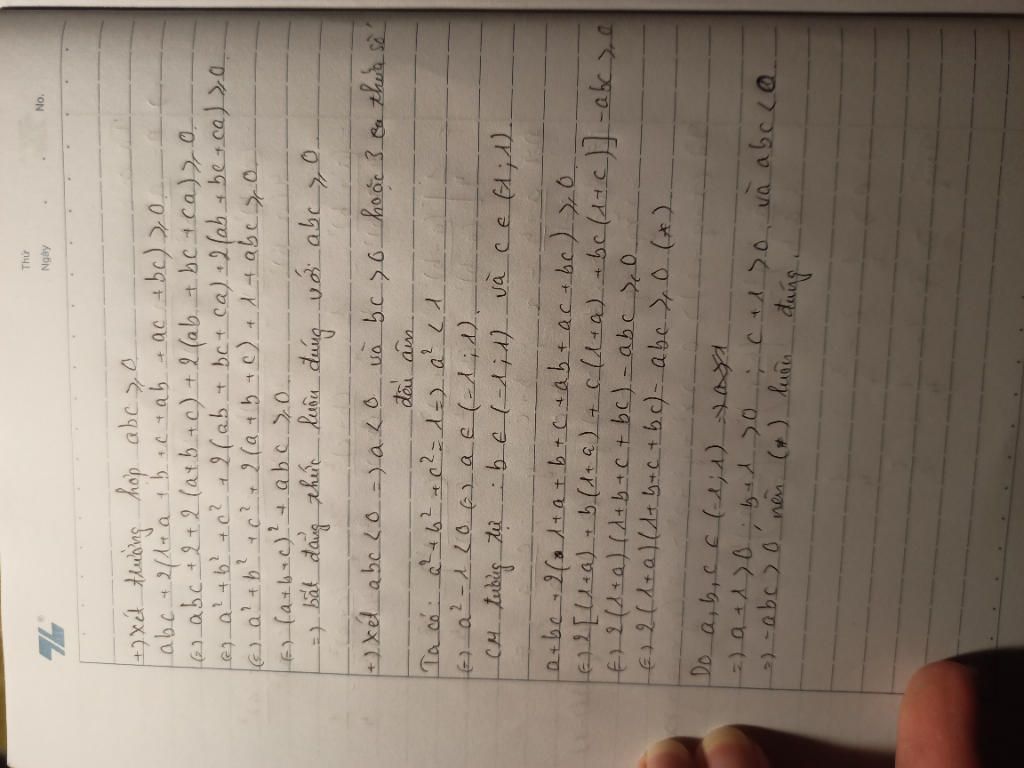 Thứ
Ngày
No.
+) Xét trường hợp abc ⩾ 0
abc + 2(1+a+b+c+ab+ac+bc) ⩾ 0
(=) abc + 2 + 2(a+b+c) + 2(ab+bc+ca) ⩾ 0
(=) a² + b² + c² + 2(ab+bc+ca) + 2(ab+bc+ca) ⩾ 0
(=) a² + b² + c² + 2(a+b+c) + 1 + abc ⩾ 0
(=) (a+b+c)² + abc ⩾ 0
=) bất đẳng thức luôn đúng với abc ⩾ 0
+) Xét abc < 0 =) a < 0 và bc > 0 hoặc 3 thừa số
đều âm
Ta có: a² + b² + c² = 1 =) a² < 1
(=) a² - 1 < 0 (=) a ∈ (-1;1)
CM tương tự: b ∈ (-1;1) và c ∈ (-1;1)
a+bc + 2(1+a+b+c+ab+ac+bc) ⩾ 0
(=) 2[(1+a) + b(1+a) + c(1+a) + bc(1+c)] - abc ⩾ 0
(=) 2(1+a)(1+b+c+bc) - abc ⩾ 0
(=) 2(1+a)(1+b+c+bc) - abc ⩾ 0 (*)
Do a,b,c ∈ (-1;1)
=) a+1 > 0; b+1 > 0; c+1 > 0 và abc < 0
=) -abc > 0 nên (*) luôn đúng.